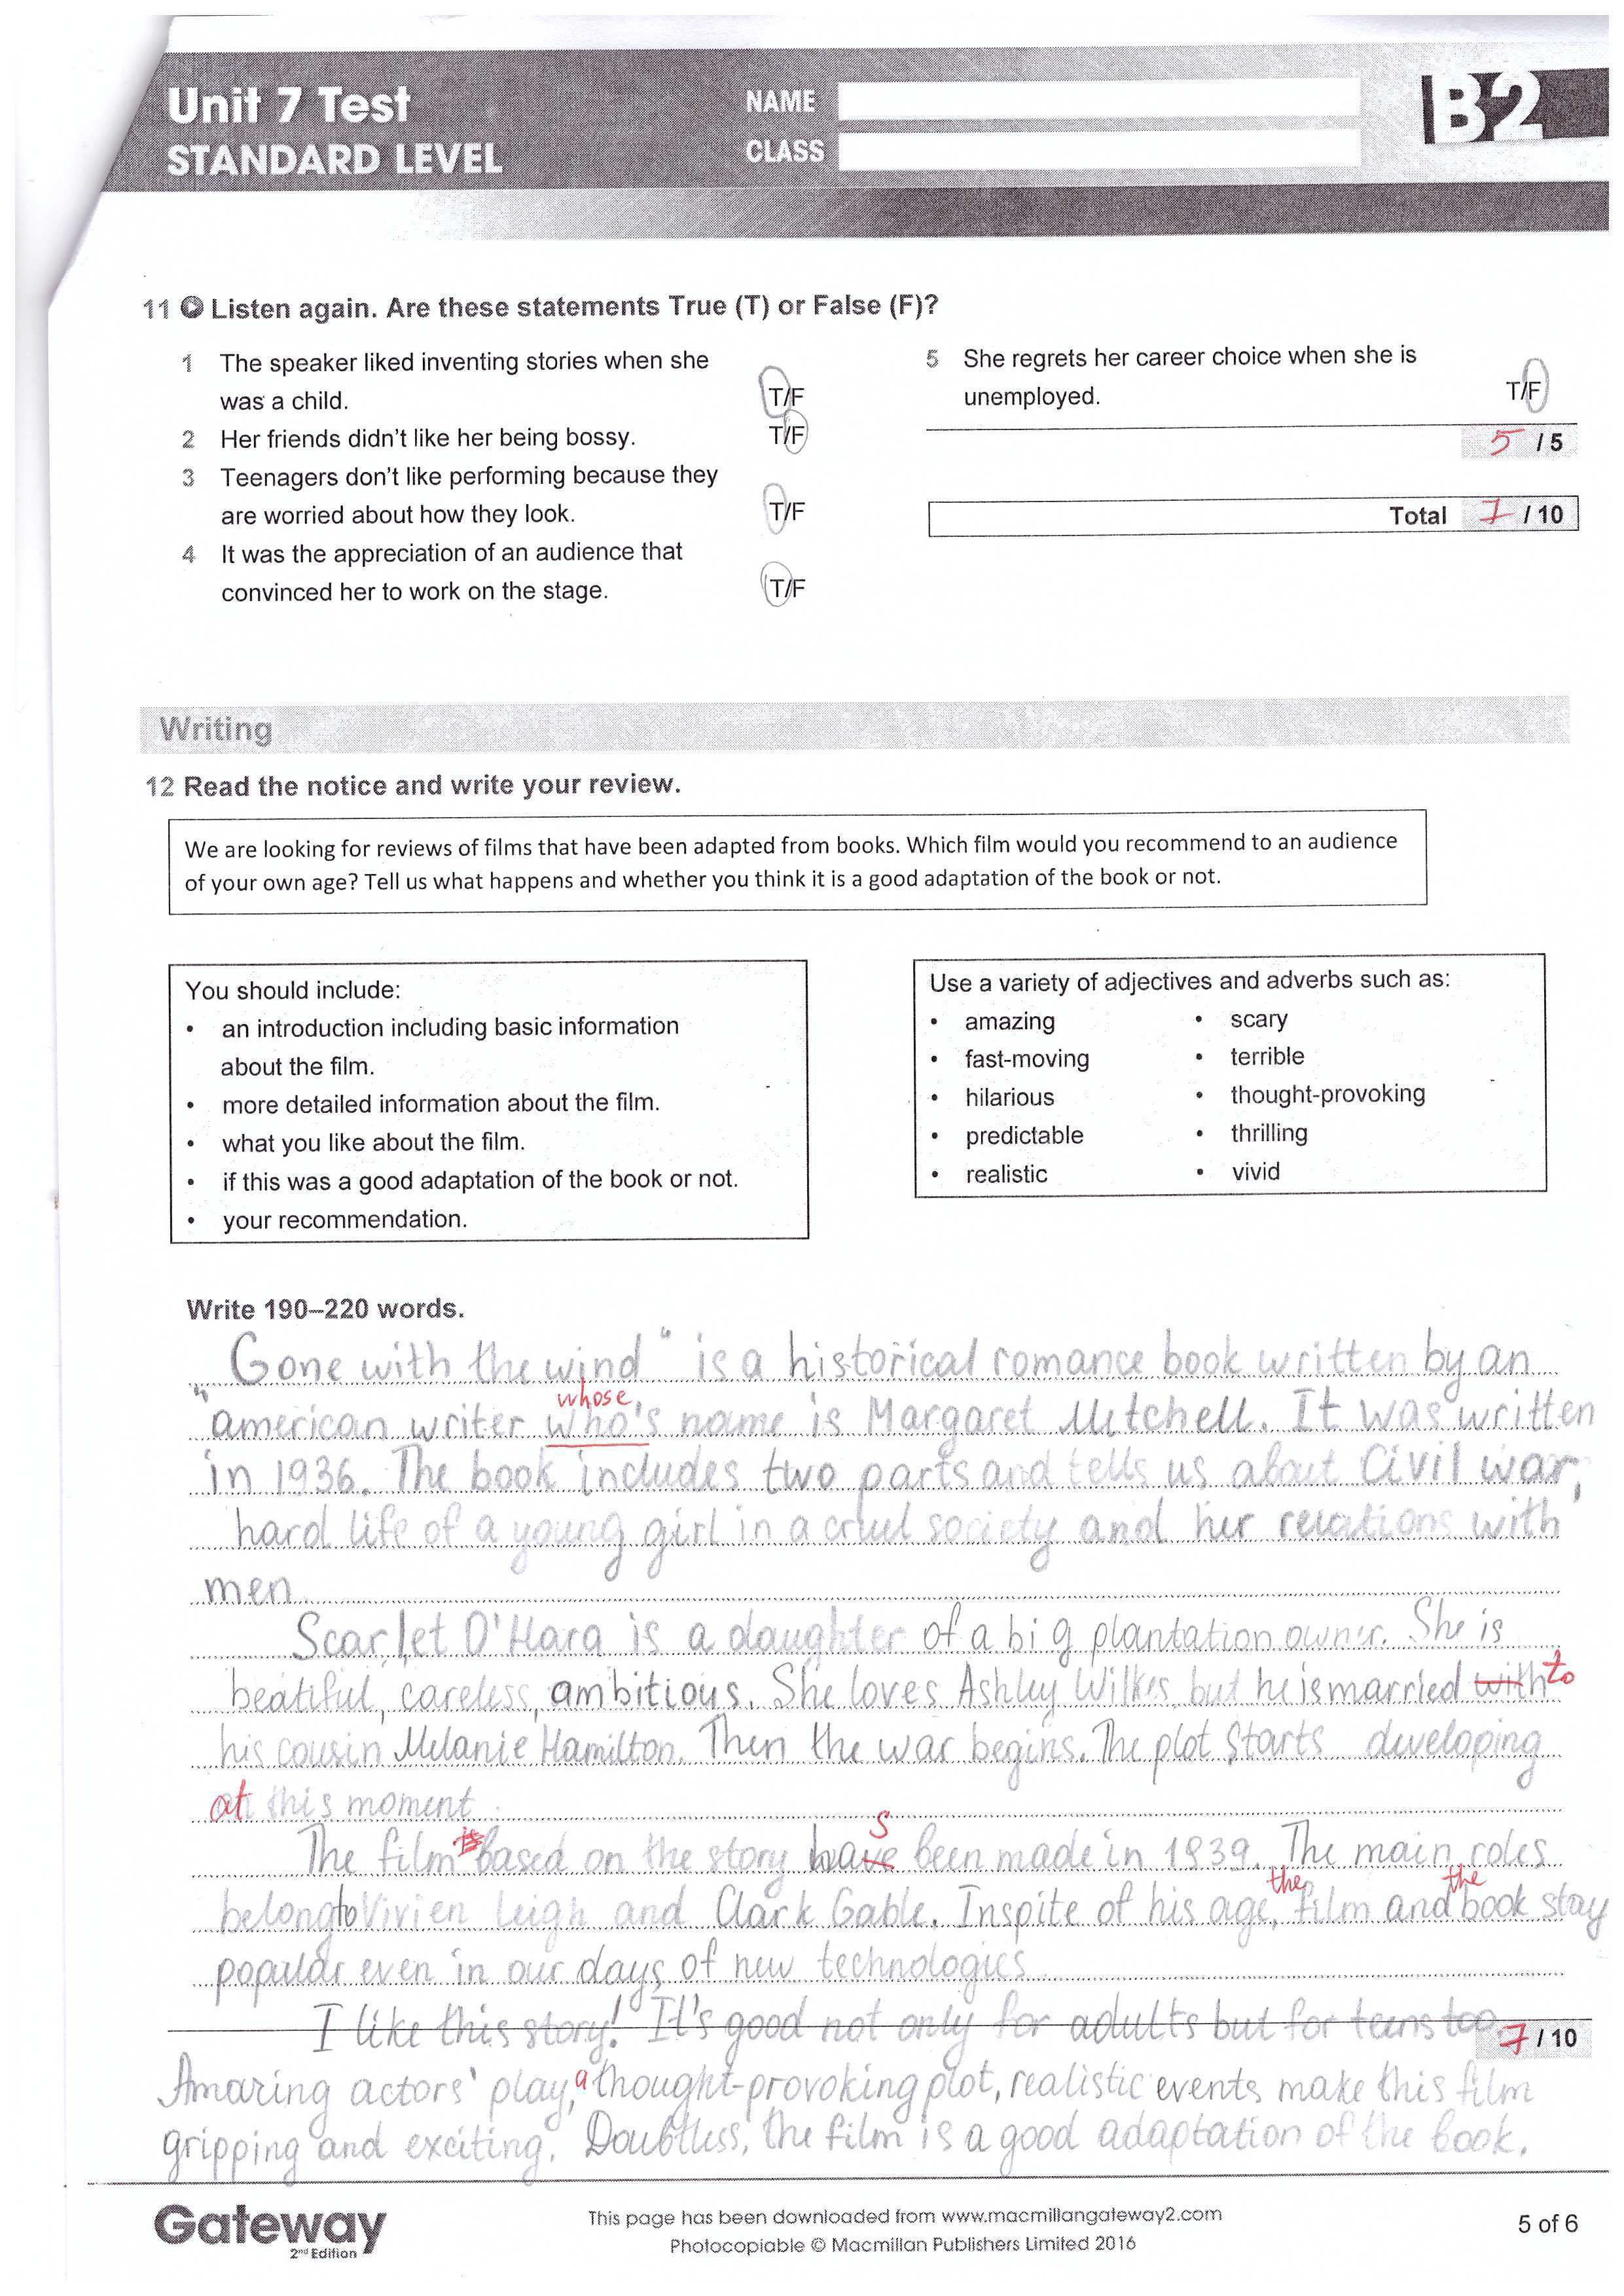 Unit 7 Test
STANDARD LEVEL
NAME
CLASS
B2
11 Listen again. Are these statements True (T) or False (F)?
1 The speaker liked inventing stories when she
was a child. T/F
2 Her friends didn't like her being bossy. T/F
3 Teenagers don't like performing because they
are worried about how they look. T/F
4 It was the appreciation of an audience that
convinced her to work on the stage. T/F
5 She regrets her career choice when she is
unemployed. T/F
5 / 5
Total 7 / 10
Writing
12 Read the notice and write your review.
We are looking for reviews of films that have been adapted from books. Which film would you recommend to an audience
of your own age? Tell us what happens and whether you think it is a good adaptation of the book or not.
You should include:
• an introduction including basic information
about the film.
• more detailed information about the film.
• what you like about the film.
• if this was a good adaptation of the book or not.
• your recommendation.
Use a variety of adjectives and adverbs such as:
• amazing • scary
• fast-moving • terrible
• hilarious • thought-provoking
• predictable • thrilling
• realistic • vivid
Write 190–220 words.
"Gone with the wind" is a historical romance book written by an
whose
american writer who's name is Margaret Mitchell. It was written
in 1936. The book includes two parts and tells us about Civil war,
hard life of a young girl in a cruel society and her relations with
men
Scarlet O'Hara is a daughter of a big plantation owner. She is
beatiful, careless, ambitious. She loves Ashley Wilkes but he is married with to
his cousin Melanie Hamilton. Then the war begins. The plot starts developing
at this moment.
s
The film is based on the story have been made in 1939. The main roles
the the
belong to Vivien Leigh and Clark Gable. Inspite of his age, film and book stay
popular even in our days of new technologies
I like this story! It's good not only for adults but for teens too.
7 / 10
Amazing actors' play, a thought-provoking plot, realistic events make this film
gripping and exciting. Doubtless, the film is a good adaptation of the book.
Gateway
2nd Edition
This page has been downloaded from www.macmillangateway2.com
Photocopiable © Macmillan Publishers Limited 2016
5 of 6